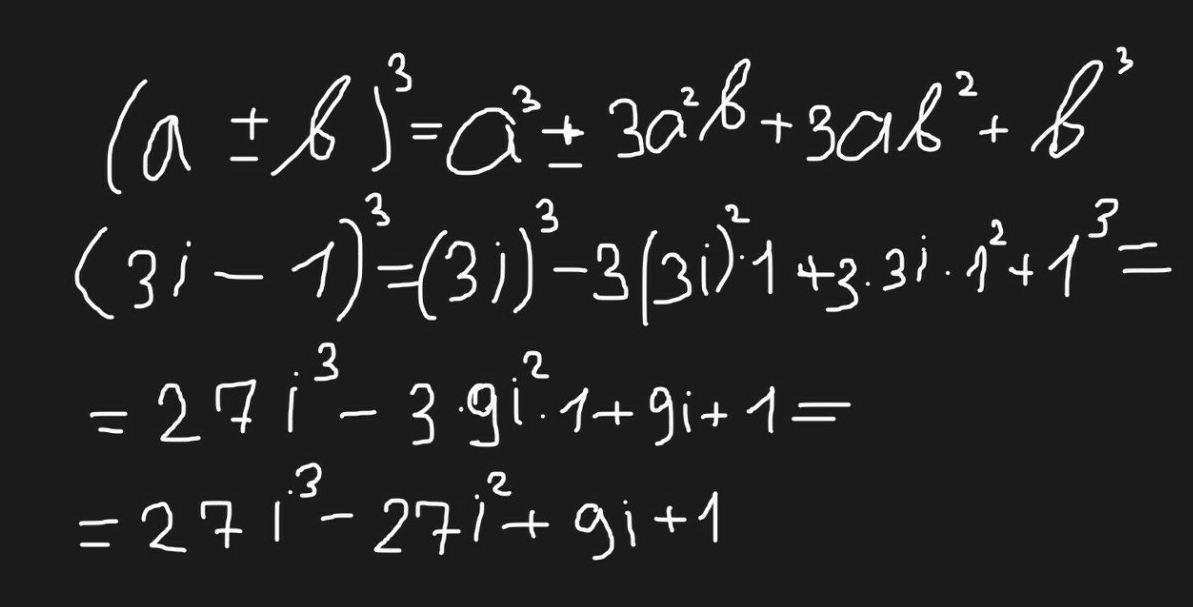 (a ± b)³ = a³ ± 3a²b + 3ab² + b³
(3i − 1)³ = (3i)³ − 3(3i)²·1 + 3·3i·1² + 1³ =
= 27i³ − 3·9i²·1 + 9i + 1 =
= 27i³ − 27i² + 9i + 1